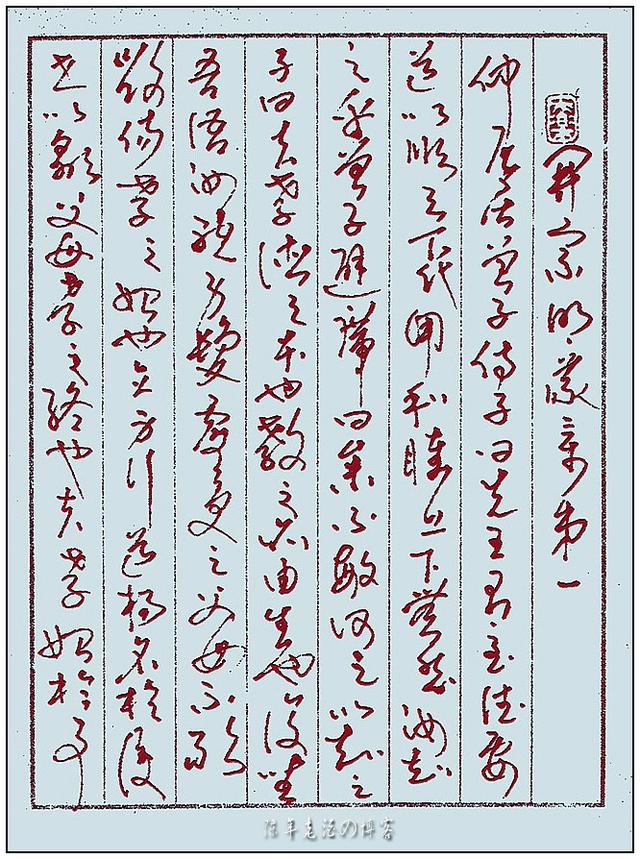 開宗明義章第一
仲尼居曾子侍子曰先王有至德要
道以順天下民用和睦上下無怨汝知
之乎曾子避席曰參不敏何足以知之
子曰夫孝德之本也教之所由生也復坐
吾語汝身體髮膚受之父母不敢
毀傷孝之始也立身行道揚名於後
世以顯父母孝之終也夫孝始於事
の博客